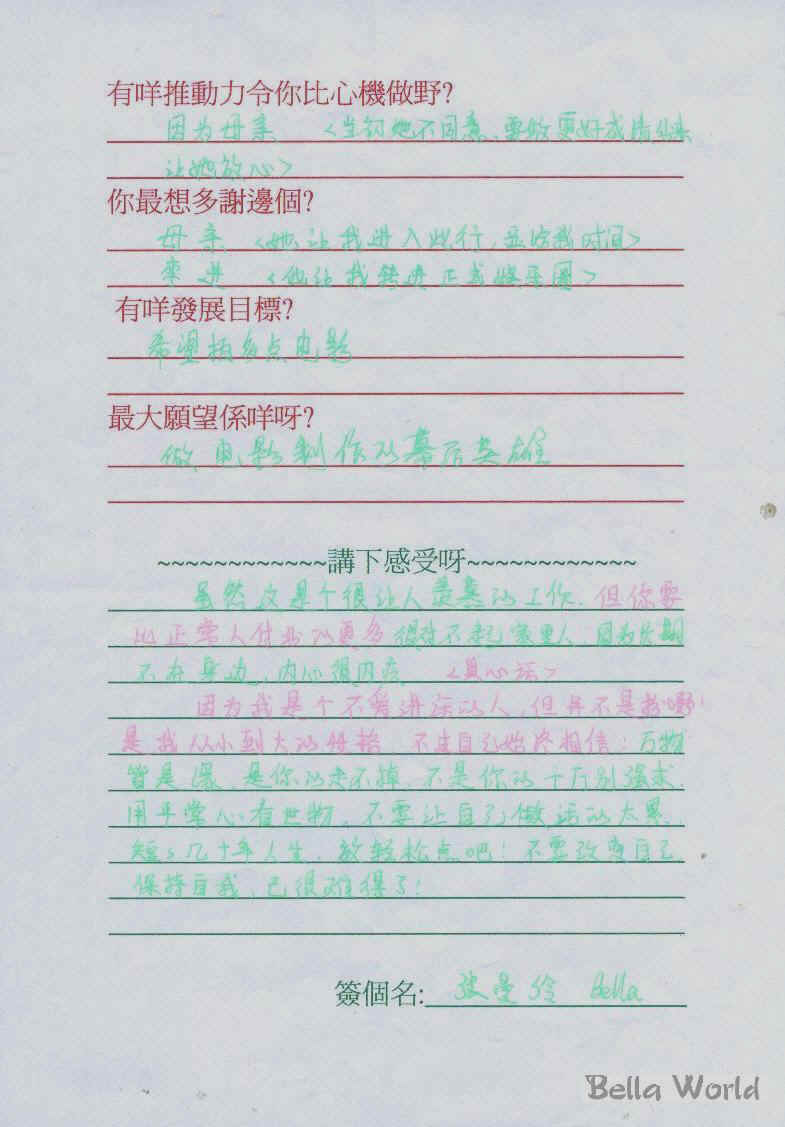 有咩推動力令你比心機做野?
因为母亲 <当初她不同意、要做更好成绩出来
让她放心>
你最想多謝邊個?
母亲 <她让我进入此行, 并给我时间>
进 <他让我转进正式娱乐圈>
有咩發展目標?
希望拍多点电影
最大願望係咩呀?
做电影制作的幕后英雄
~~~~~~~~~~~~講下感受呀~~~~~~~~~~~~
虽然这是个很让人羡慕的工作. 但你要
比正常人付出的更多 很对不起家里人, 因为长期
不在身边, 内心很内疚 <真心话>
因为我是个不爱讲话的人, 但并不是
是我从小到大的性格, 不过自己始终相信: 万物
皆是缘, 是你的走不掉, 不是你的千万别强求.
用平常心看世物, 不要让自己做活的太累.
短短几十年人生, 放轻松点吧! 不要改变自己
保持自我, 已很难得了!
簽個名: 张曼伶 Bella
Bella World